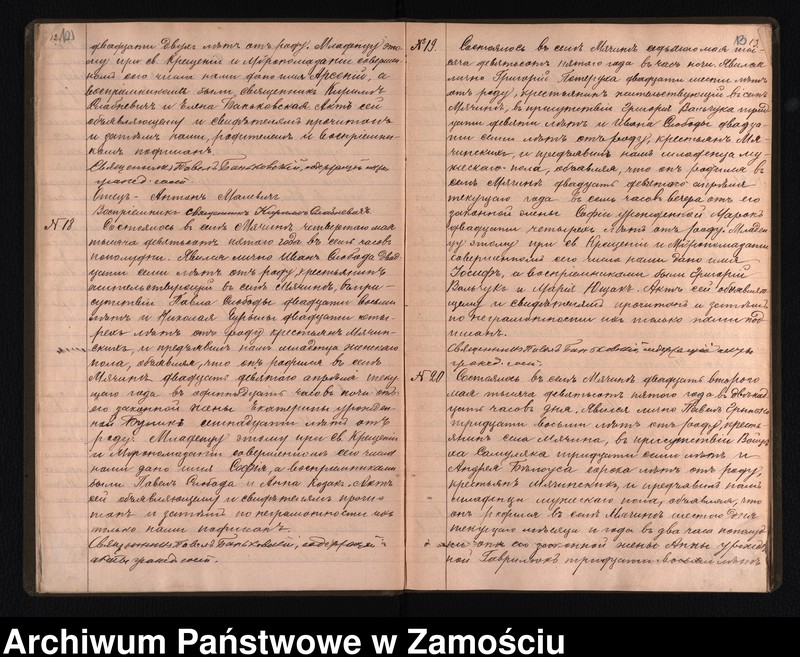 12
двадцати двухъ лѣтъ отъ роду. Младенцу это-
му при св. Крещеніи и Мѵропомазаніи совершен-
номъ его числа нами дано имя Арсеній, а
воспріемниками были, священникъ Кириллъ
и Елена Баньковская. Актъ сей
объявляющему и свидѣтелямъ прочитанъ
и затѣмъ нами, родителемъ и воспріемни-
комъ подписанъ.
Священникъ Павелъ Баньковскій, содержащій акты
гражд. сост.
Отецъ - Антонъ
Воспріемникъ священникъ Кириллъ
№ 18 Состоялось въ селѣ Мячинъ четвертого мая
тысяча девятьсотъ пятаго года въ семь часовъ
пополудни. Явился лично Иванъ Слобода двад-
цати семи лѣтъ отъ роду, крестьянинъ
жительствующій въ селѣ Мячинъ, въ при-
сутствіи Павла Слободы двадцати восьми
лѣтъ и Николая двадцати четы-
рехъ лѣтъ отъ роду крестьянъ Мячин-
скихъ, и предъявилъ намъ младенца женскаго
пола, объявляя, что онъ родился въ селѣ
Мячинъ двадцать девятаго апрѣля теку-
щаго года въ одиннадцать часовъ ночи отъ
его законной жены Екатерины урожден-
ной семнадцати лѣтъ отъ
роду. Младенцу этому при св. Крещеніи
и Мѵропомазаніи совершенномъ его числа
нами дано имя Софія, а воспріемниками
были Павелъ Слобода и Анна Козакъ. Актъ
сей объявляющему и свидѣтелямъ прочи-
танъ и затѣмъ по неграмотности ихъ
только нами подписанъ.
Священникъ Павелъ Баньковскій, содержащій
акты гражд. сост.
13
№ 19. Состоялось въ селѣ Мячинъ седьмаго мая ты-
сяча девятьсотъ пятаго года въ часъ ночи. Явился
лично Григорій двадцати шести лѣтъ
отъ роду, крестьянинъ жительствующій въ селѣ
Мячинъ, въ присутствіи Григорія Вальчука трид-
цати девяти лѣтъ и Ивана Слободы двадца-
ти семи лѣтъ отъ роду, крестьянъ Мя-
чинскихъ, и предъявилъ намъ младенца му-
жескаго пола, объявляя, что онъ родился въ
селѣ Мячинъ двадцать девятаго апрѣля
текущаго года въ семь часовъ вечера отъ его
законной жены Софіи урожденной
двадцати четырехъ лѣтъ отъ роду. Младен-
цу этому при св. Крещеніи и Мѵропомазаніи
совершенномъ его числа нами дано имя
Іосифъ, а воспріемниками были Григорій
Вальчукъ и Марія Ющакъ. Актъ сей объявляю-
щему и свидѣтелямъ прочитанъ и затѣмъ
по неграмотности ихъ только нами под-
писанъ.
Священникъ Павелъ Баньковскій содержащій акты
гражд. сост.
№ 20 Состоялось въ селѣ Мячинъ двадцать втораго
мая тысяча девятьсотъ пятаго года въ двѣнад-
цать часовъ дня. Явился лично Павелъ
тридцати восьми лѣтъ отъ роду, кресть-
янинъ села Мячина, въ присутствіи
Самуляка тридцати семи лѣтъ и
Андрея Бѣлоуса сорока лѣтъ отъ роду,
крестьянъ Мячинскихъ, и предъявилъ намъ
младенца мужескаго пола, объявляя, что
онъ родился въ селѣ Мячинъ шестаго дня
текущаго мѣсяца и года въ два часа пополуд-
ни отъ его законной жены Анны урожден-
ной Гаврилюкъ тридцати восьми лѣтъ
Archiwum Państwowe w Zamościu